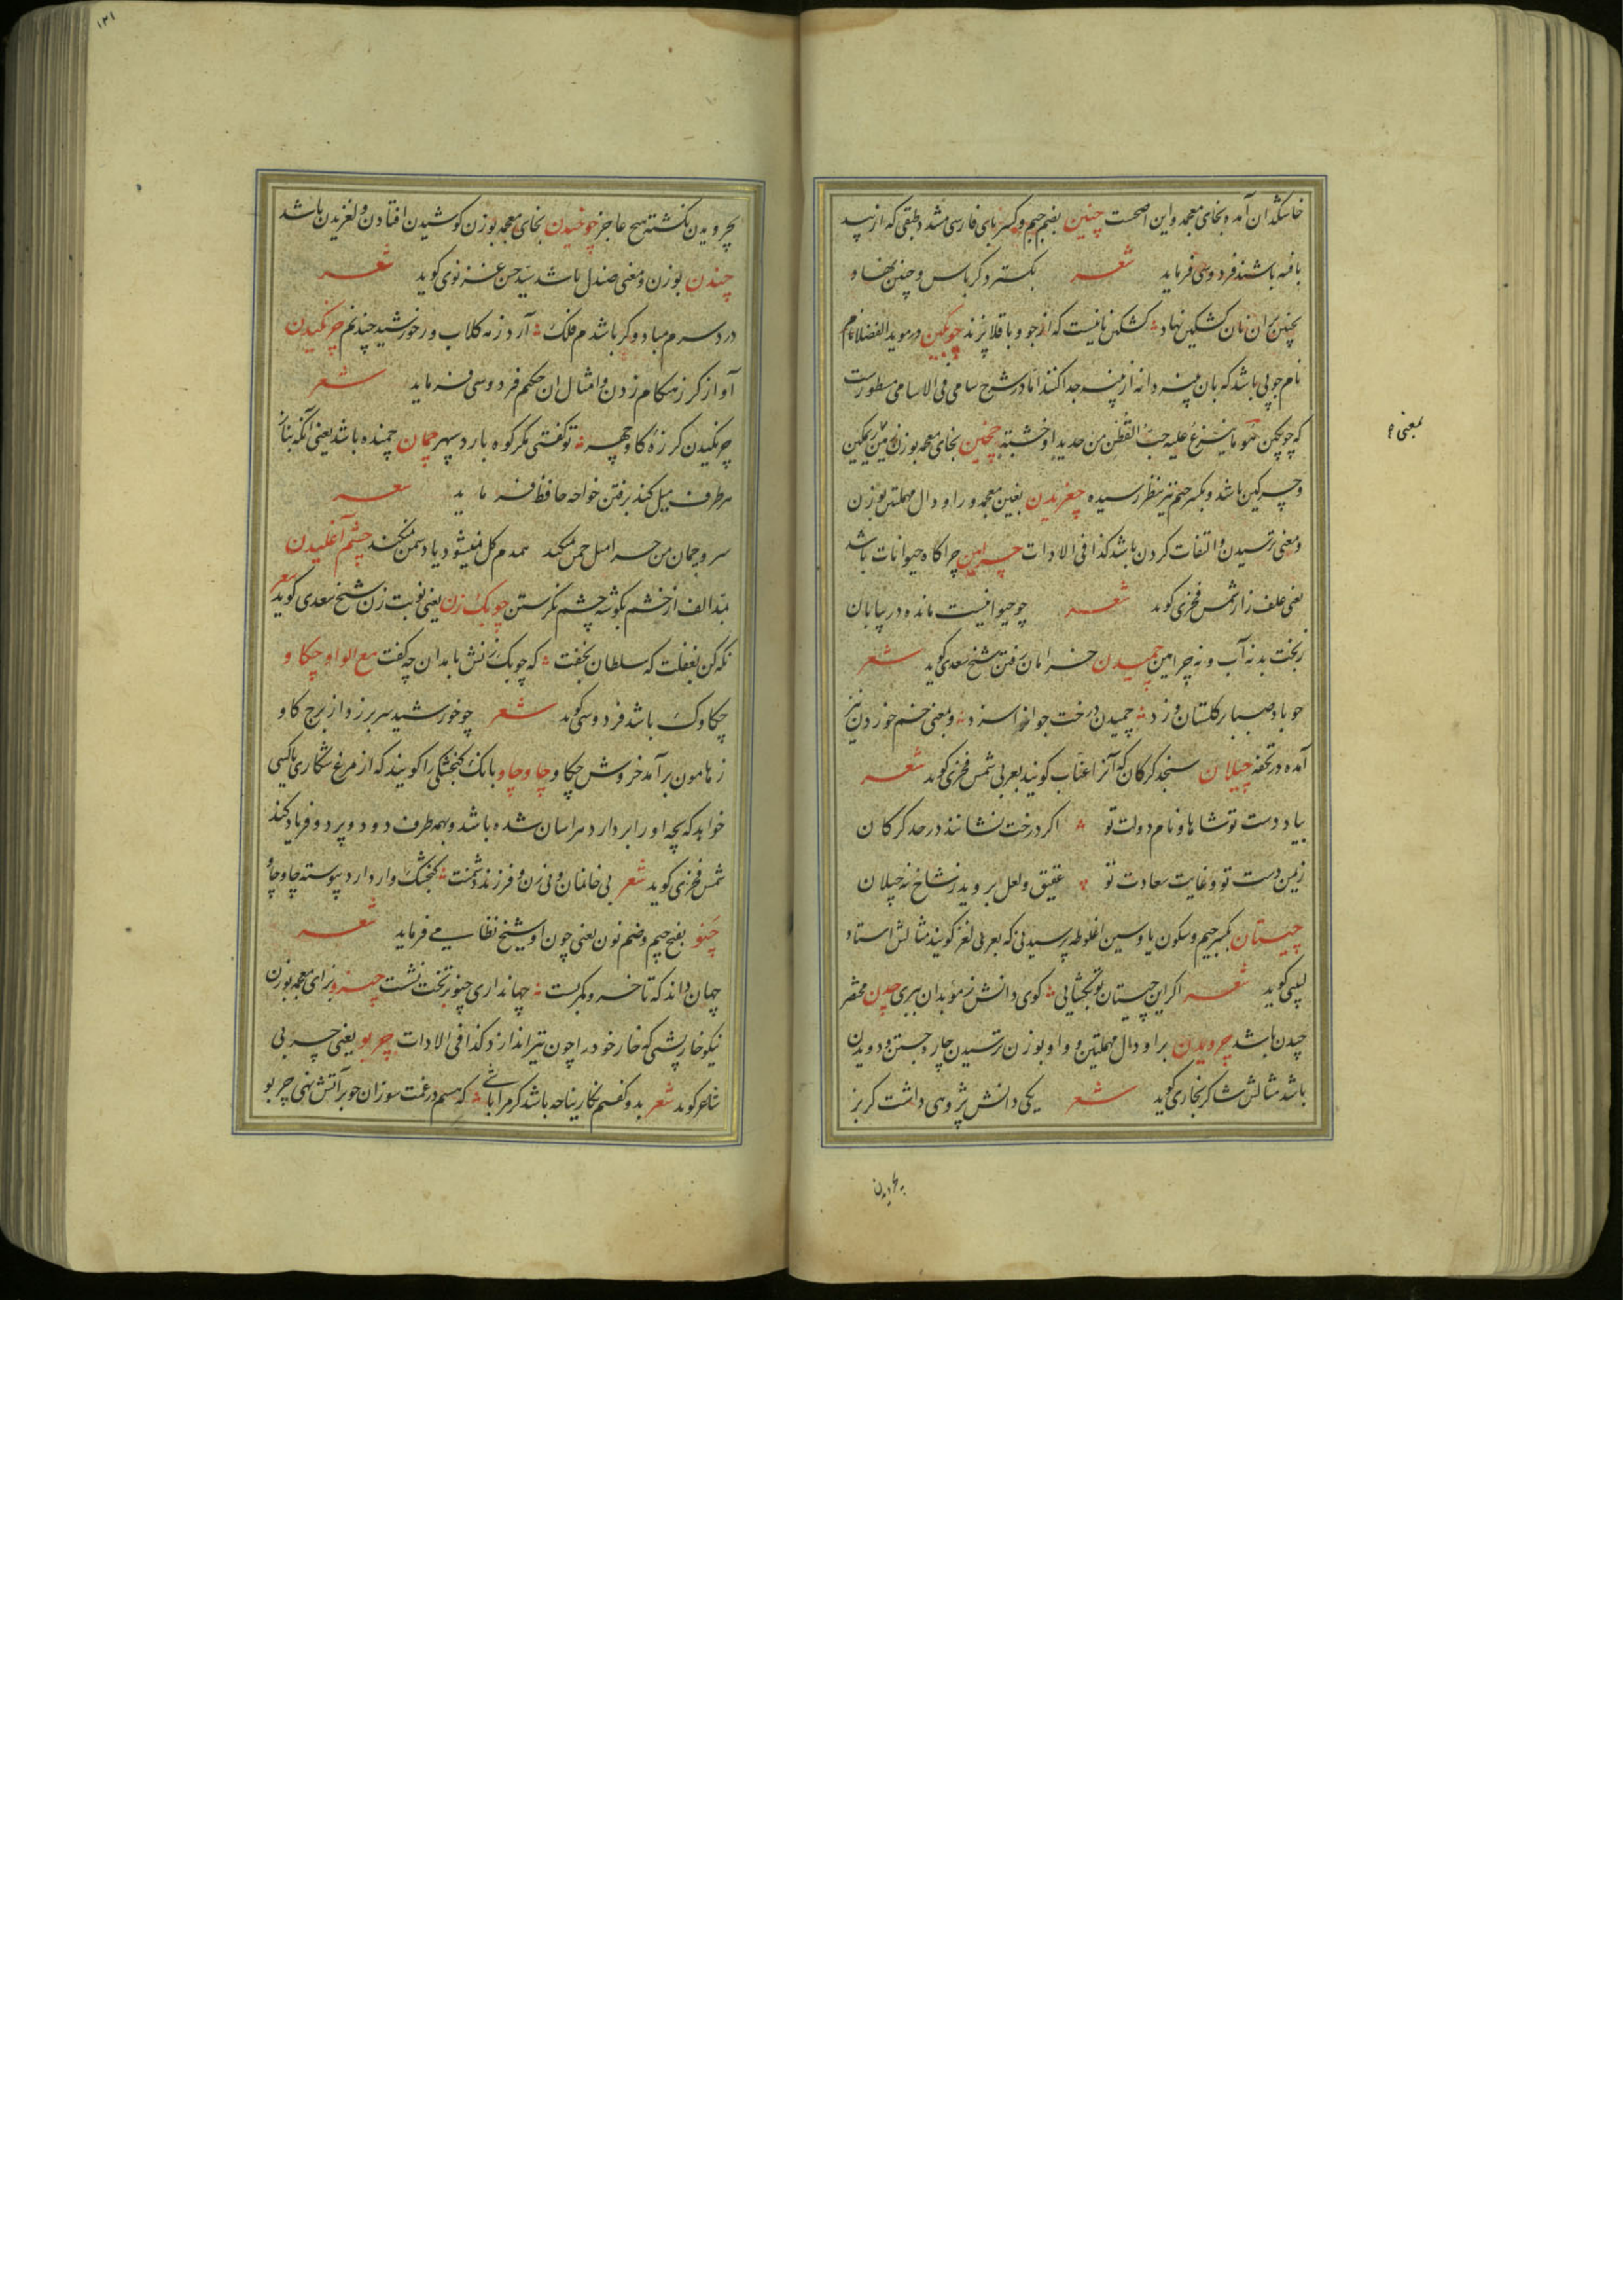 خاسکدان آمده و بخای معجمه و این اصحست چنین بضم جیم و کسر بای فارسی مشدد طبقی که از بید
بافته باشند فردوسی فرماید شعر بکسترد کرباس و چنین نهاد
بچنین بران نان کشکین نهاد کشکین نانیست که از جو و باقلا پزند چوبکین در موید الفضلا نام
نام چوبی باشد که بان پنبه دانه از پنبه جدا کنند اما در شرح سامی فی الاسامی مسطورست
که چوبکین هو ما ینزع علیه حب القطن من حدید او خشبة چخین بخای معجمه بوزن
و چرکین باشد و بکسر جیم نیز بنظر رسیده چغریدن بغین معجمه و را و دال مهملتین بوزن
و معنی ترسیدن و التفات کردن باشد کذا فی الادات چرامین چراکاه حیوانات باشد
یعنی علف زار شمس فخری کوید شعر چو حیوانیست مانده در بیابان
ز بخت بد نه آب و نه چرامین چمیدن خرامان رفتن شیخ سعدی کوید شعر
چو باد صبا بر کلستان وزد چمیدن درخت جوانرا سزد و بمعنی خم خوردن نیز
آمده در تحفه چیلان سنجد کرکان که آنرا عناب کویند بعربی شمس فخری کوید شعر
بیاد دست تو شاها و نام دولت تو اکر درخت نشانند در حد کرکان
زیمن دست تو و غایت سعادت تو عقیق و لعل بروید ز شاخ نه چیلان
چیستان بکسر جیم و سکون یا و سین اغلوطه پرسیدنی که بعربی لغز کویند مثالش استاد
لبیبی کوید شعر اکر این چیستان تو بکشایی کوی دانش ز موبدان ببری چدن مختصر
چیدن باشد چرویدن برا و دال مهملتین و واو بوزن ترسیدن چاره جستن و دویدن
باشد مثالش شاکر بخاری کوید شعر یکی دانش پژوهی داشت کربز
بمعنی
بچرویدن
۱۲۱
بچرویدن نکشته هیچ عاجز چوخیدن بخای معجمه بوزن کوشیدن افتادن و لغزیدن باشد
چندن بوزن و معنی صندل باشد سید حسن غزنوی کوید شعر
درد سرم مباد و کر باشدم فلک آرد ز مه کلاب و ز خورشید چندنم چرنکیدن
آواز کرز هنکام زدن و امثال ان حکیم فردوسی فرماید شعر
چرنکیدن کرزه کاو چهر تو کفتی مکر کوه بارد سپهر چمان چمنده باشد یعنی آنکه بناز
هر طرف میل کند برفتن خواجه حافظ فرماید شعر
سرو چمان من چرا میل چمن نمیکند همدم کل نمیشود یاد سمن نمیکند چشم آغلیدن
بمد الف از خشم بکوشه چشم نکرستن چوبک زن یعنی نوبت زن شیخ سعدی کوید شعر
نکه کن بغفلت که سلطان بخفت که چوبک زنش بامدادان چه کفت مع الواو چکاو
چکاوک باشد فردوسی کوید شعر چو خورشید سر بر زد از برج کاو
ز هامون برآمد خروش چکاو چاوچاو بانک کنجشکی را کویند که از مرغ شکاری یا کسی
خواهد که بچه او را بردارد هراسان شده باشد و بهمه طرف دود و پرد و فریاد کند
شمس فخری کوید شعر بی خانمان و بی زن و فرزند دشمنت کنجشک وار دارد پیوسته چاوچاو
چنو بفتح جیم و ضم نون یعنی چون او شیخ نظامی فرماید شعر
جهان داند که تا خسرو کمر بست جهانداری چنو بر تخت ننشست چیزو بزای معجمه بوزن
نیکو خارپشتی که خار خود را چون تیر اندازد کذا فی الادات چربو یعنی چربی
شاعر کوید شعر بدو کفتم نکارینا چه باشد کر مرا بابی که هستم در غمت سوزان چو بر آتش نهی چربو